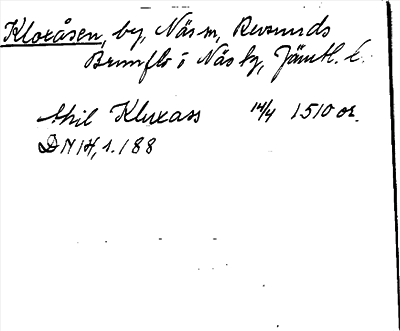 Kloxåsen, by, Näs sn, Revsunds
Brunflo i Näs tg, Jämtl. l.
Kluxass 14/4 1510 or.
DN 14, s. 188